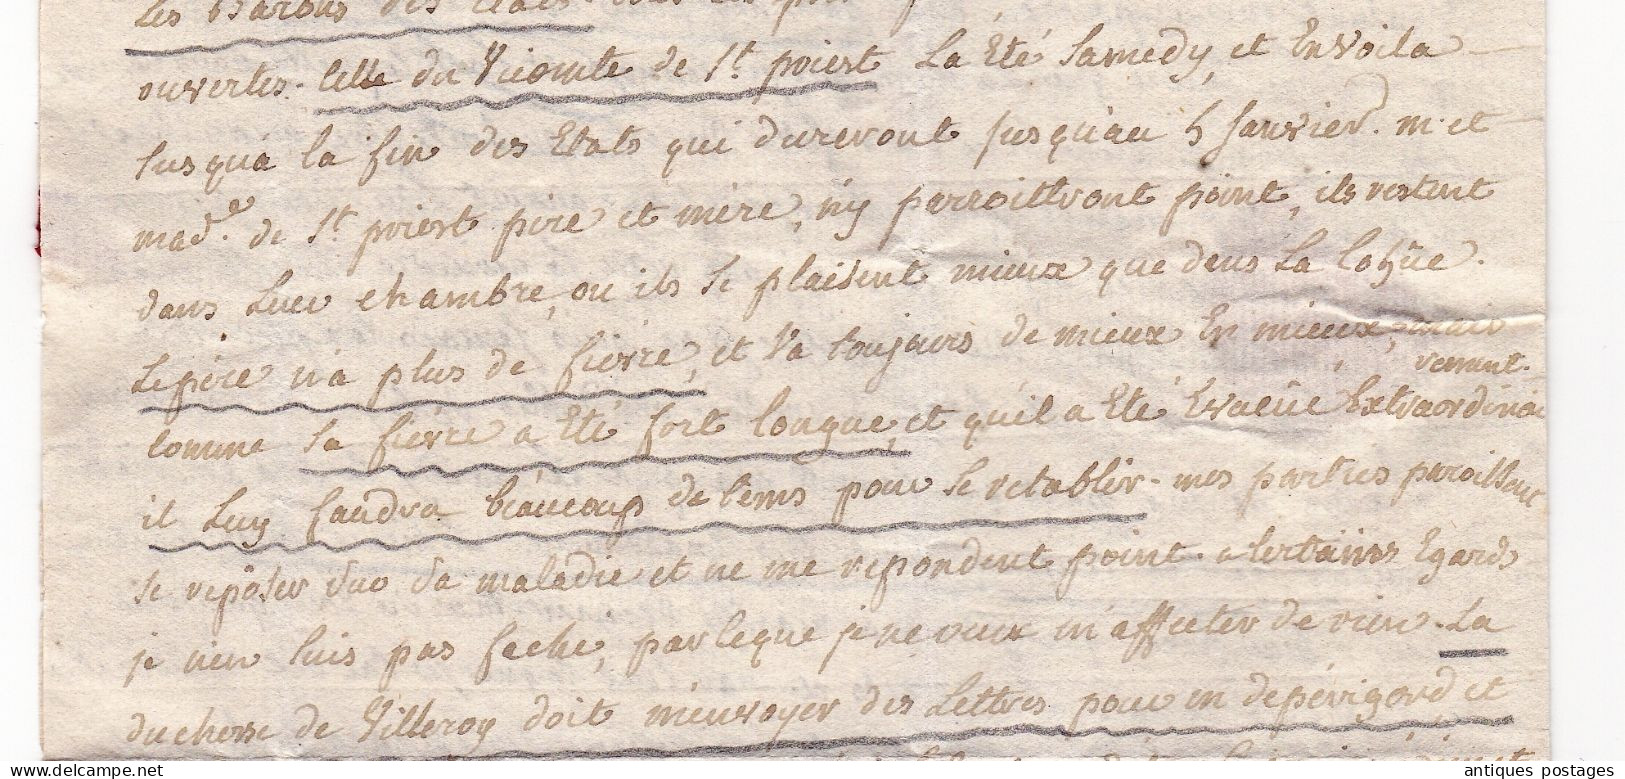 Les Barons des Etats
ouvertes. Celle du Vicomte de St. priest La Eté Samedy, et En Voila
Jusqua la fin des Etats qui dureront Jusqu'au 5 Janvier. m. et
made. de St. priest pere et mere, n'y parroittront point, ils restent
dans Leur chambre, ou ils se plaisent mieux que dans La Cohüe.
Le pere n'a plus de fievre, et Va toujours de mieux En mieux, mais
comme sa fievre a Eté fort longue, et qu'il a Eté Evacüé Extraordinairement.
il Luy faudra beaucoup de tems pour se retablir. mes parties paroissent
se repôser Sur Sa maladie et ne me repondent point. a Certains Egards
je n'en suis pas faché, parceque je ne veux m'affecter de rien. La
duchesse de Villeroy doit m'envoyer des Lettres pour mr de périgord, et
delcampe.net
antiques postages